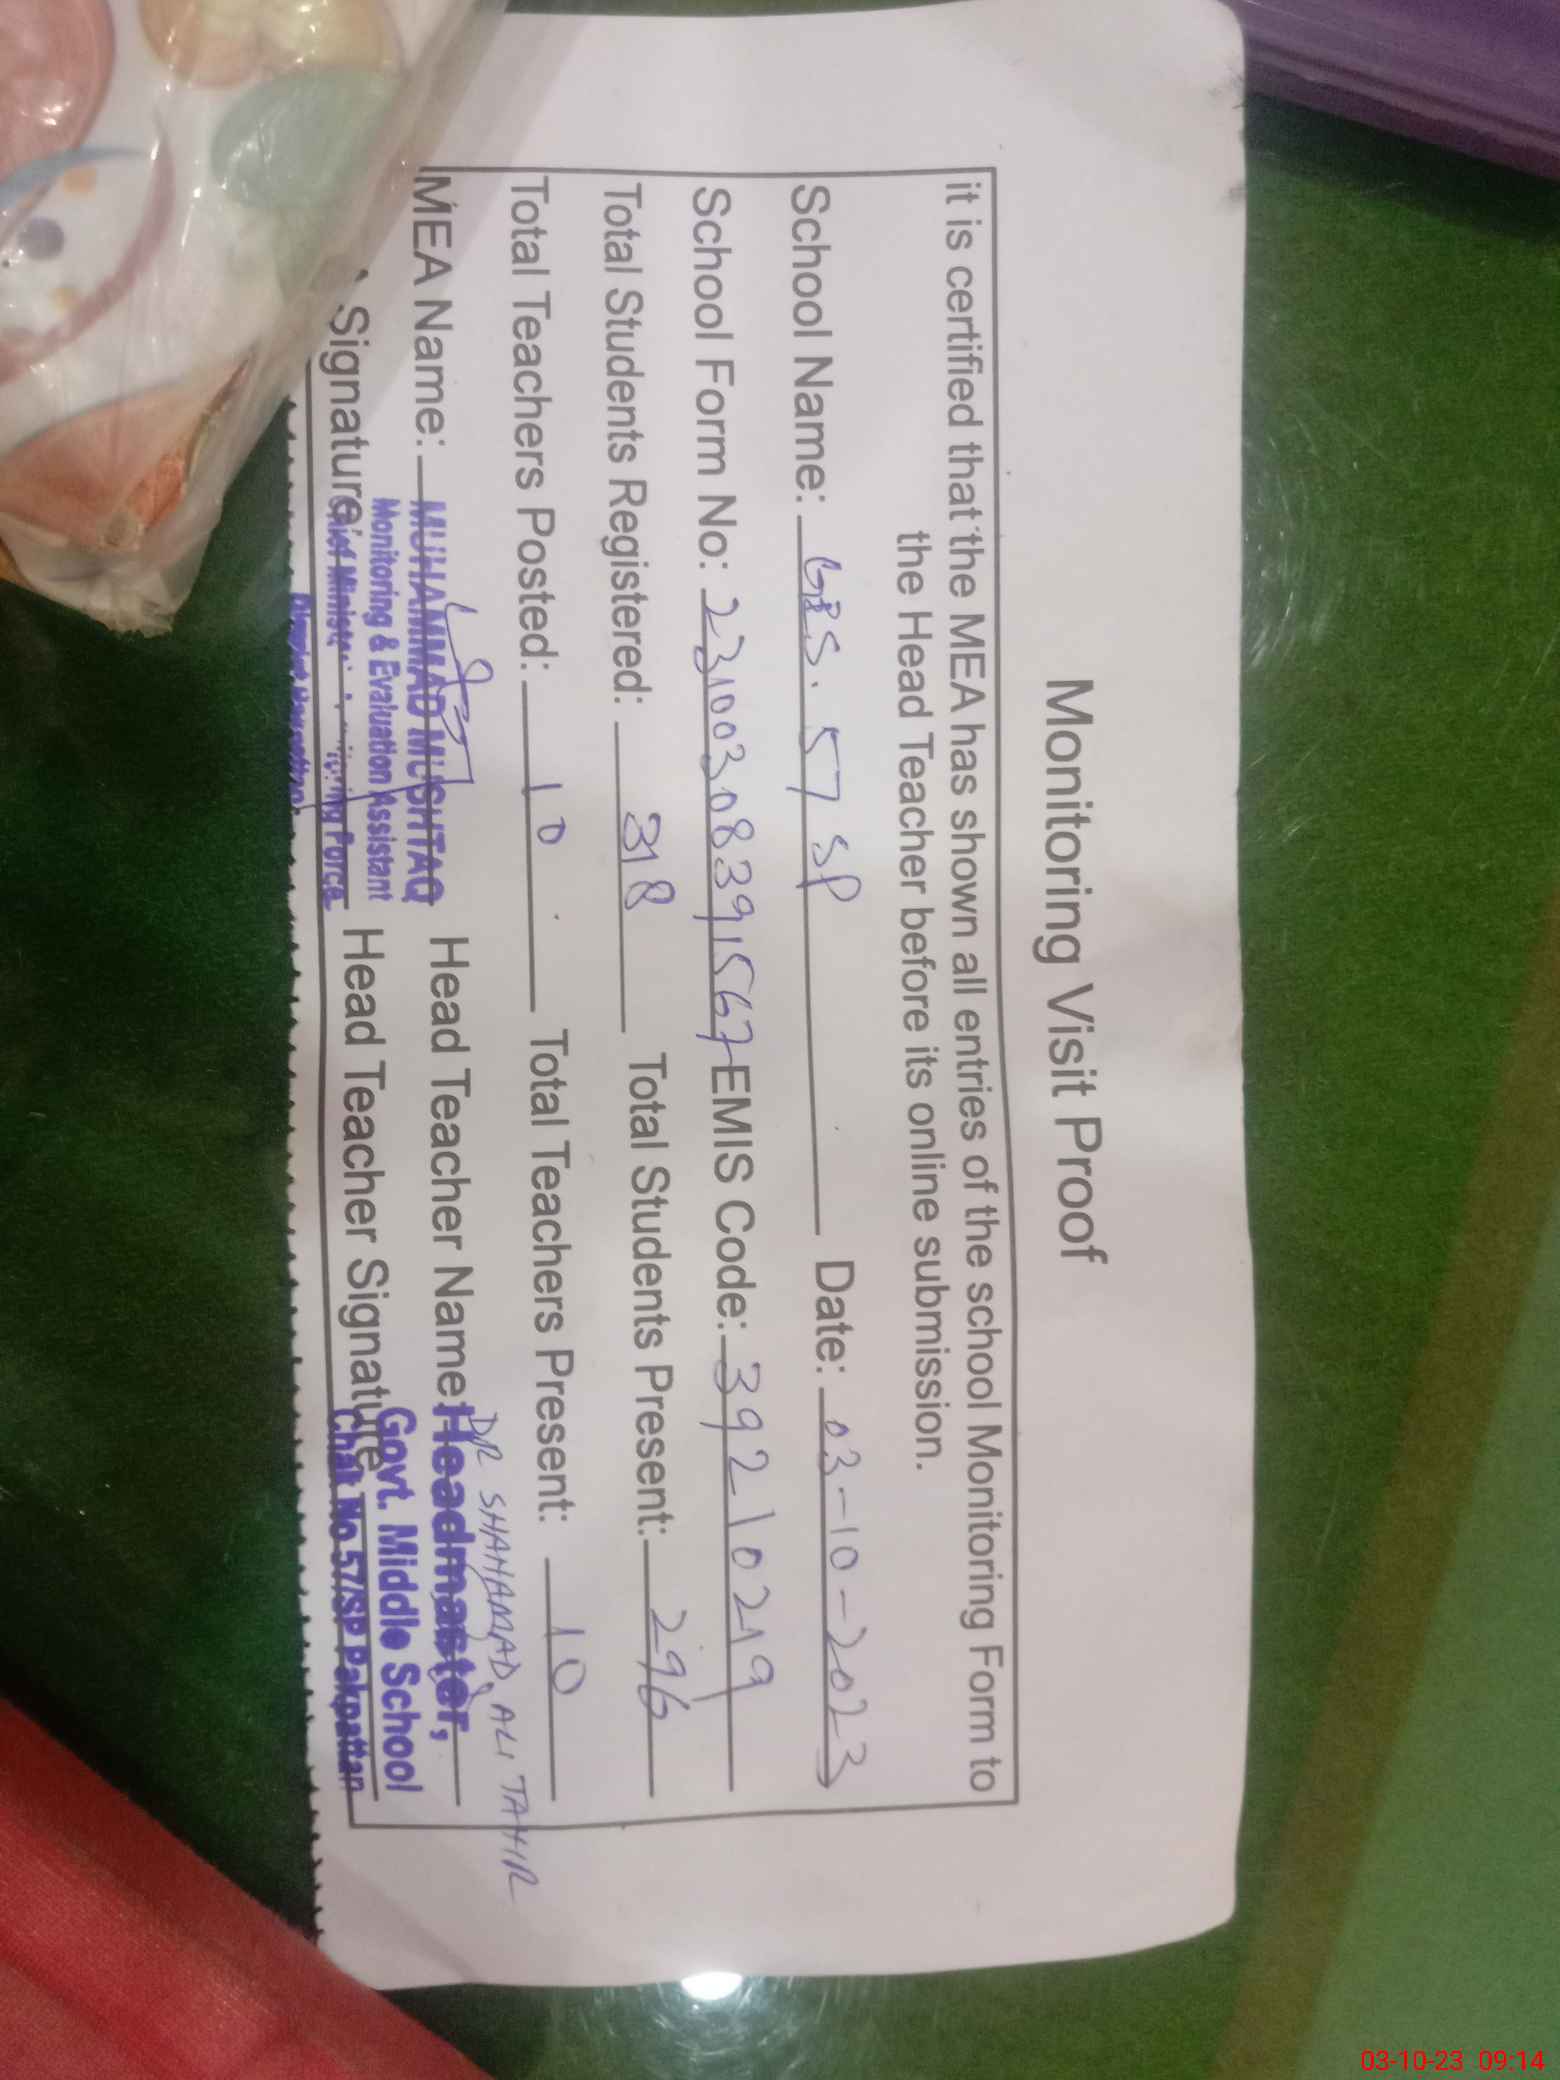 Monitoring Visit Proof
it is certified that the MEA has shown all entries of the school Monitoring Form to
the Head Teacher before its online submission.
School Name: GES. 57 SP Date: 03-10-2023
School Form No: 23100308391567 EMIS Code: 39210219
Total Students Registered: 318 Total Students Present: 296
Total Teachers Posted: 10 Total Teachers Present: 10
DR SHAHAMAD ALI TAHIR
MEA Name: MUHAMMAD MUSHTAQ Head Teacher Name: Headmaster,
Monitoring & Evaluation Assistant Govt. Middle School
Signature: Chief Minister's Monitoring Force Head Teacher Signature Chak No.57/SP Pakpattan
03-10-23 09:14